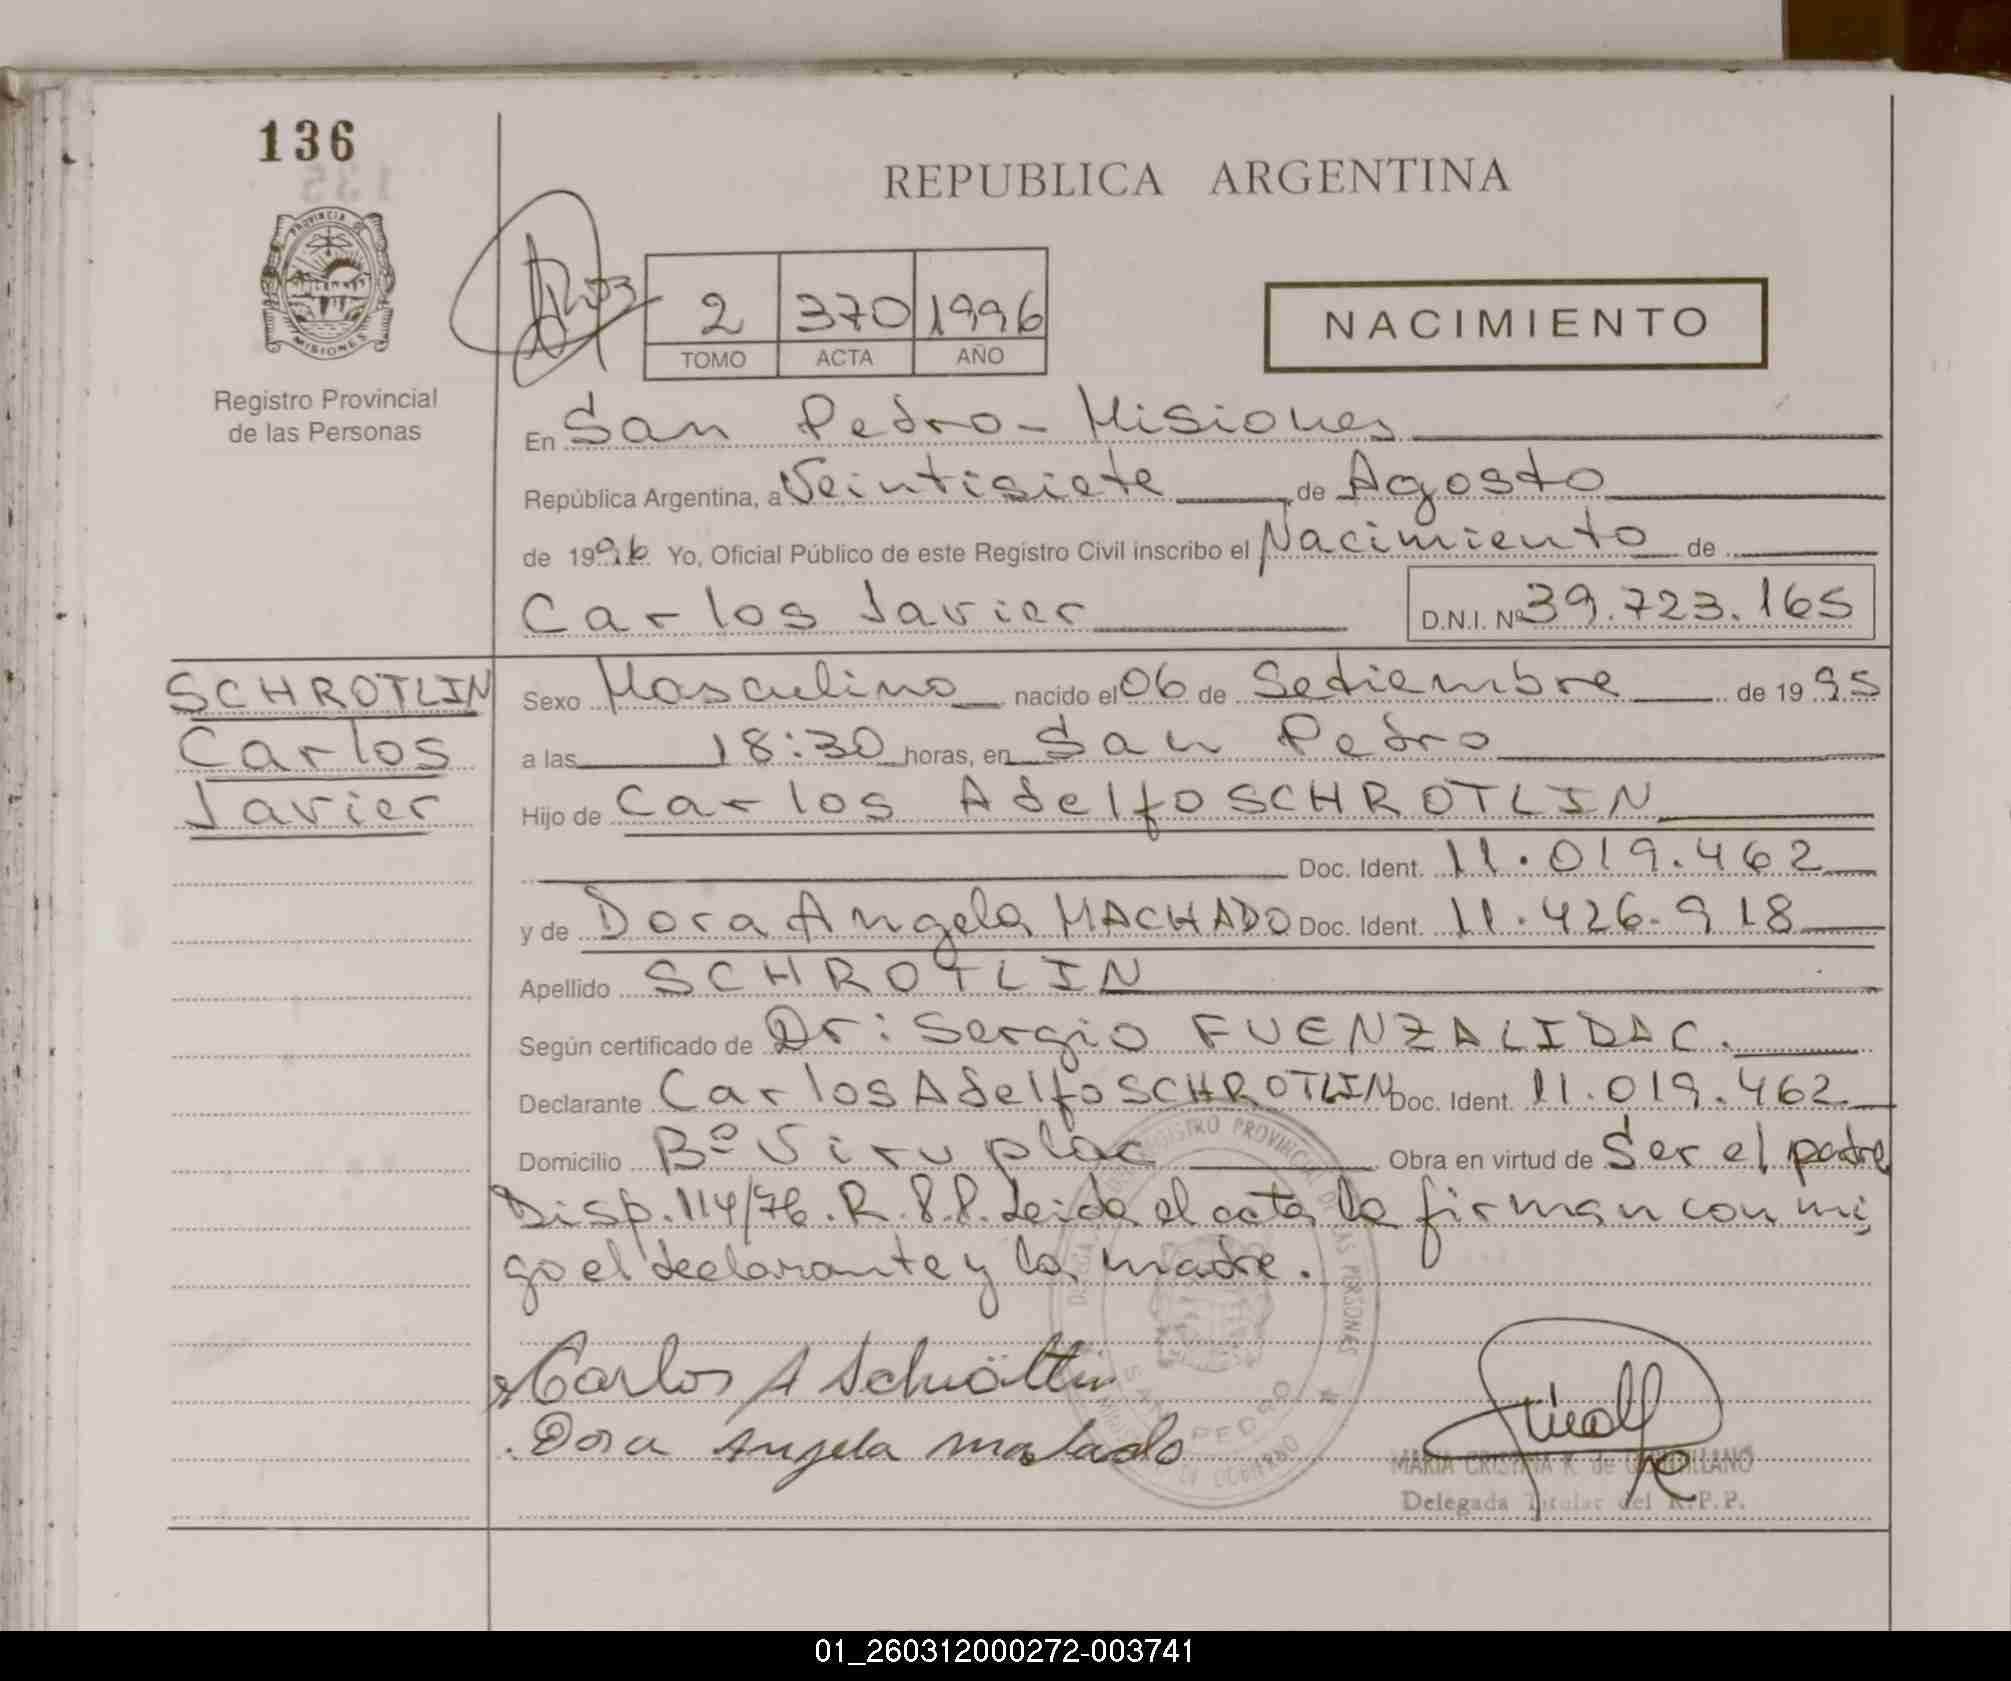 136
REPUBLICA ARGENTINA
PROVINCIA DE
MISIONES
Registro Provincial
de las Personas
2 370 1996
TOMO ACTA AÑO
NACIMIENTO
En San Pedro - Misiones
República Argentina, a Veintisiete de Agosto
de 1996 Yo, Oficial Público de este Registro Civil inscribo el Nacimiento de
Carlos Javier D.N.I. Nº 39.723.165
SCHROTLIN
Carlos
Javier
Sexo Masculino nacido el 06 de Setiembre de 1995
a las 18:30 horas, en San Pedro
Hijo de Carlos Adelfo SCHROTLIN
Doc. Ident. 11.019.462
y de Dora Angela MACHADO Doc. Ident. 11.426.918
Apellido SCHROTLIN
Según certificado de Dr: Sergio FUENZALIDA C.
Declarante Carlos Adelfo SCHROTLIN Doc. Ident. 11.019.462
Domicilio Bº Viru plac Obra en virtud de Ser el padre
Disp. 114/76. R.P.P. Leida el acta la firman con mi
go el declarante y la madre.
Carlos A Schrötlin
Dora Angela Machado
REGISTRO PROVINCIAL DE LAS PERSONAS
SAN PEDRO
MARIA CRISTINA K. de
Delegada Titular del R.P.P.
01_260312000272-003741